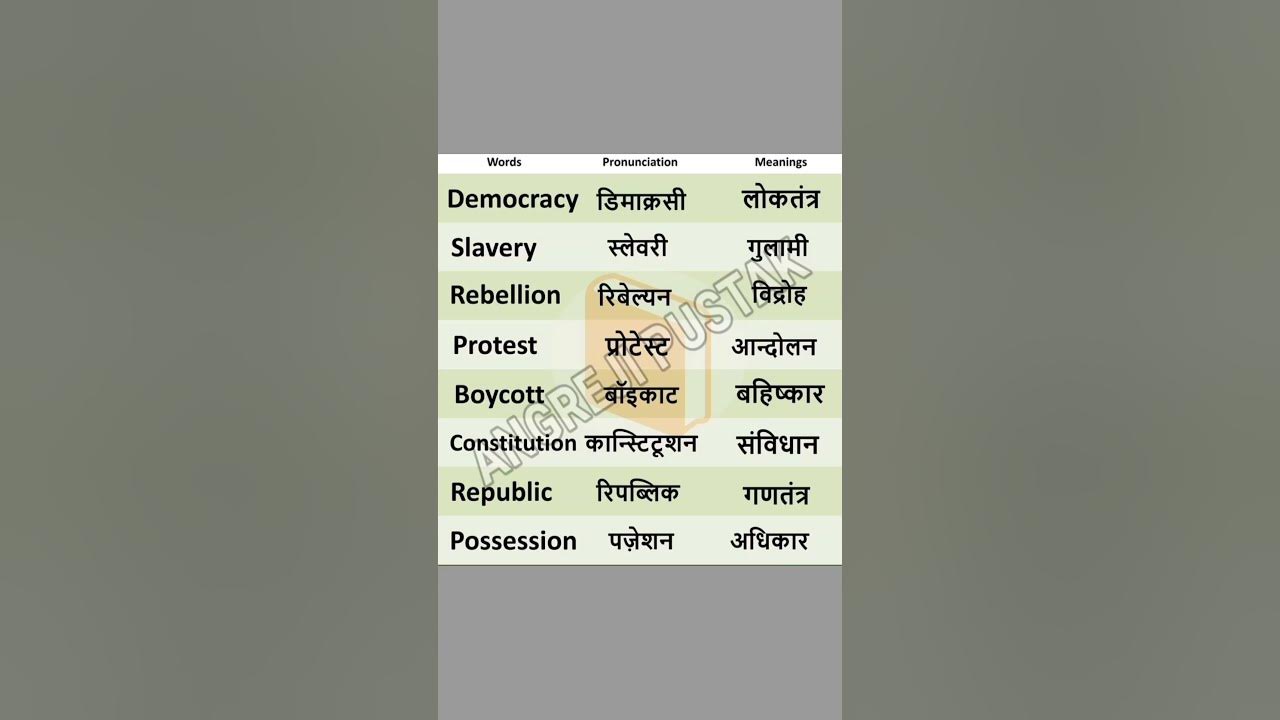 Words Pronunciation Meanings
Democracy डिमाक्रसी लोकतंत्र
Slavery स्लेवरी गुलामी
Rebellion रिबेल्यन विद्रोह
Protest प्रोटेस्ट आन्दोलन
Boycott बॉइकाट बहिष्कार
Constitution कान्स्टिटूशन संविधान
Republic रिपब्लिक गणतंत्र
Possession पज़ेशन अधिकार
ANGREJI PUSTAK